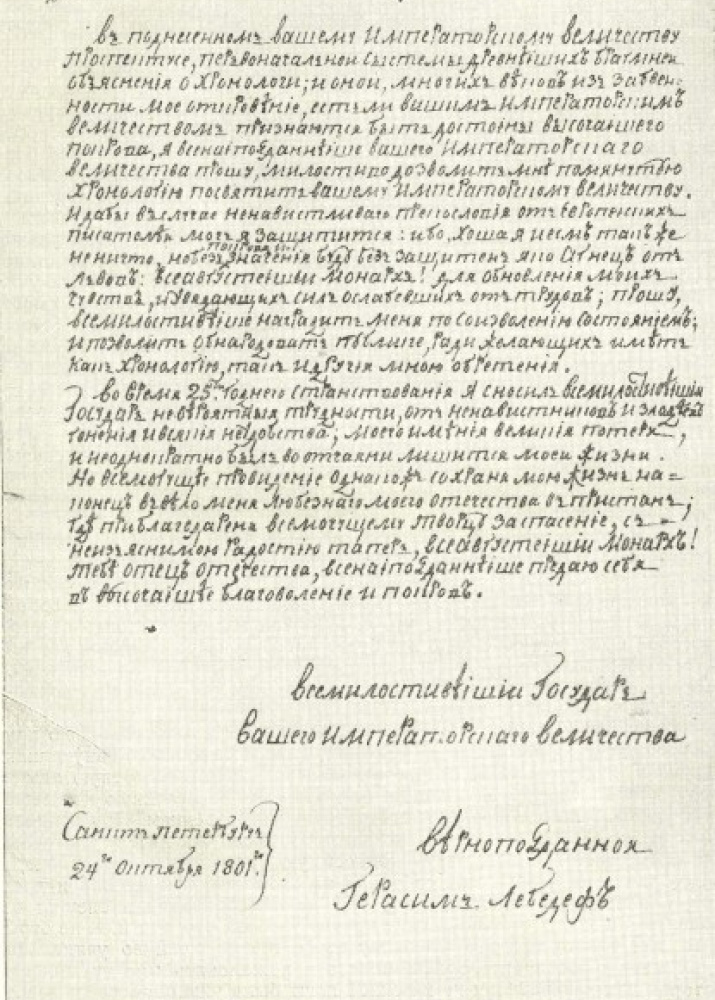 въ поднесенномъ вашему Императорскому величеству
проспектусе, первоначальной системы древнѣйшихъ брагмней
объяснения о хронологи; и оной, многихъ вѣковъ изъ забвен-
ности мое открове́ніе, естьли вашимъ императорскимъ
величествомъ признаются быть достойны высочайшего
покрова, я всенайподданнѣише вашего Императорскаго
величества прошу, милостиво дозволить мнѣ помянутую
хронологію посвятить вашему Императорскому величеству.
И дабы въ случае ненавистливаго преословія отъ Европейскихъ
писателей могъ я защитится: ибо, хоша я и есмь такъ же
неничто, но безъ покрова значения буду беззащитенъ яко Агнецъ отъ
львовъ: всеавгустейшій Монархъ! для обновления моихъ
чувствъ, и увядающихъ силъ ослабевшихъ отъ трудовъ; прошу,
всемилостивѣйше наградить меня по соизволению состояніемъ;
и позволить обнародовать публике, ради желающихъ имѣть
какъ хронологію, такъ и другія мною обретения.
во время 25. годнего странствования я сносилъ всемилостивѣйшій
Государь невѣроятныя трудности, отъ ненавистниковъ и злодѣевъ
гонения и всякия неудобства; моего имѣния великия потери,
и неоднократно былъ во отчаяни лишится моей жизни.
Но всемогущее провидение однакожъ сохраня мою жизнь на=
конецъ въвѣло меня любезнаго моего отечества въ пристань;
гдѣ приблагодаря всемогущему творцу за спасение, съ -
неизъяснимою радостию теперь, всеавгустейшій Монархъ!
тебѣ отецъ отечества, всенайподданнѣише предаю себя
въ высочайшее благоволение и покровъ.
всемилостивѣйшій Государь
вашего императорскаго величества
Санкт петербургъ
24го октября 1801го.
вѣрноподданной
Герасимъ Лебедефъ